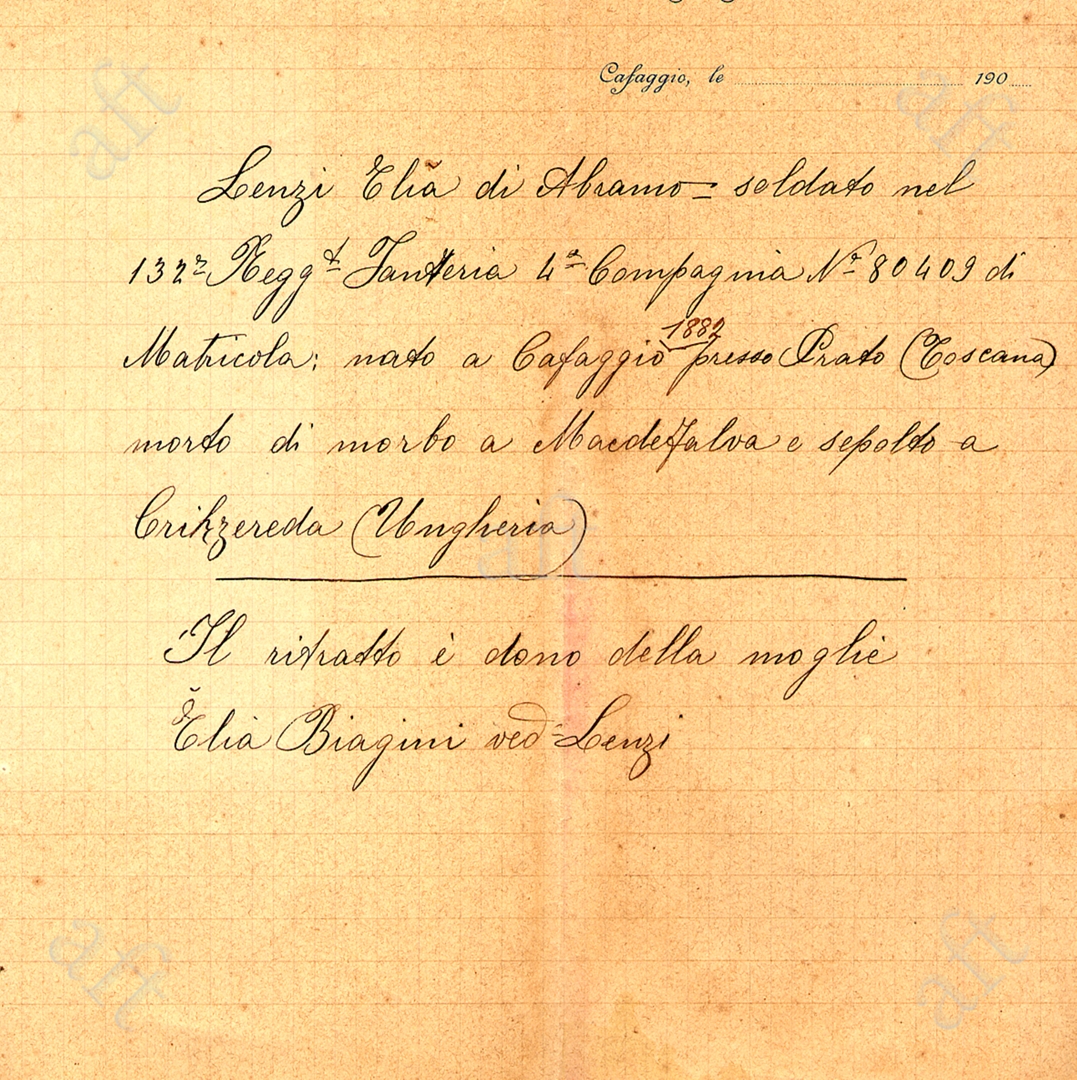 Cafaggio, le ........................ 190....
Lenzi Elia di Abramo = soldato nel
132º Reggt Fanteria 4ª Compagnia Nº 80409 di
Matricola: nato a Cafaggio 1882 presso Prato (Toscana)
morto di morbo a Macdefalva e sepolto a
Crikzereda (Ungheria)
Il ritratto è dono della moglie
Elia Biagini ved= Lenzi
aft
aft
aft
aft
aft